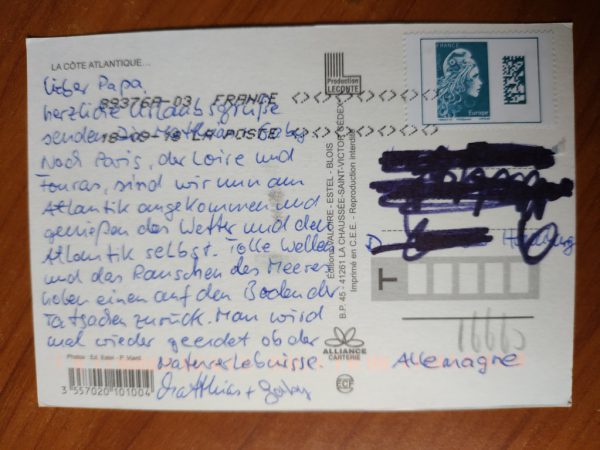 LA CÔTE ATLANTIQUE...
Lieber Papa,
herzliche Urlaubsgrüße
senden Dir Matthias + Gaby
Nach Paris, der Loire und
sind wir nun am
Atlantik angekommen und
genießen das Wetter und den
Atlantik selbst. Tolle Wellen
und das Rauschen des Meeres
holen einen auf den Boden der
Tatsachen zurück. Man wird
mal wieder geerdet ob der
Naturerlebnisse.
Matthias + Gaby
89376A-03 FRANCE
18-09-18 LA POSTE
Photos : Ed. Estel - P. Viard
3 557020 101004
Production
LECONTE
Editions VALOIRE - ESTEL - BLOIS
B.P. 45 - 41261 LA CHAUSSÉE-SAINT-VICTOR CEDEX
Imprimé en C.E.E. - Reproduction interdite
ALLIANCE
CARTERIE
FRANCE
Europe
D
Hamburg
T
Allemagne